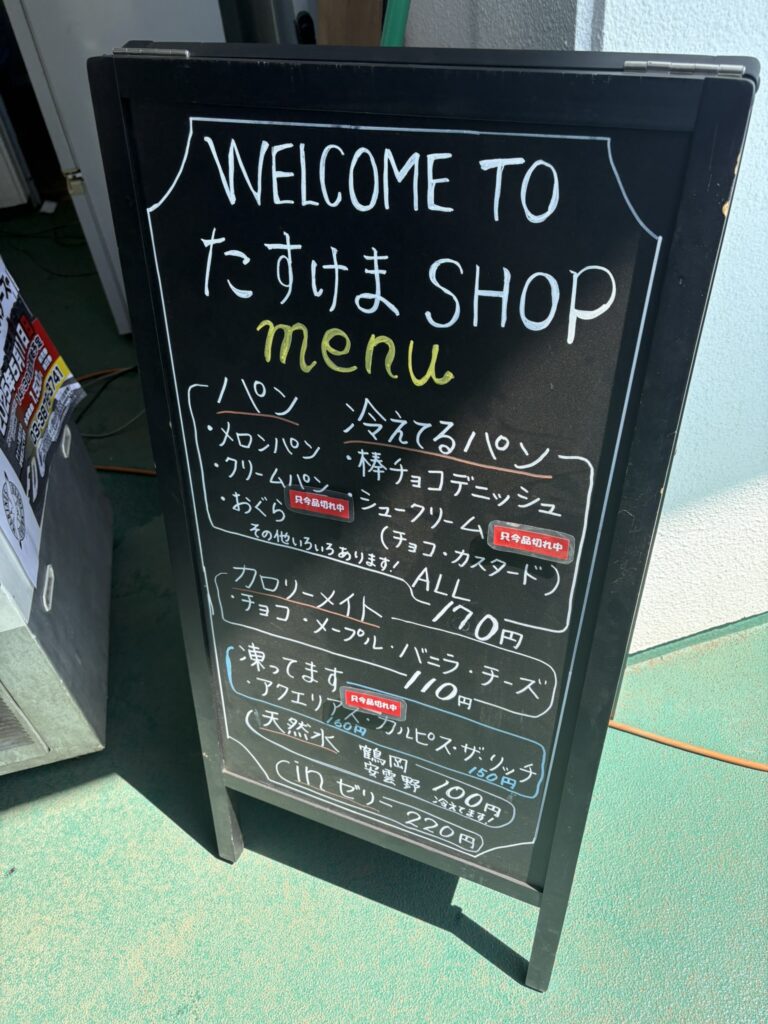 WELCOME TO
たすけま SHOP
menu
パン
・メロンパン
・クリームパン
・おぐら
只今品切れ中
その他いろいろあります!
冷えてるパン
・棒チョコデニッシュ
・シュークリーム
(チョコ・カスタード)
只今品切れ中
ALL
170円
カロリーメイト
・チョコ・メープル・バニラ・チーズ
110円
凍ってます
只今品切れ中
・アクエリアス・カルピス・ザ・リッチ
160円
150円
天然水
鶴岡
安曇野
100円
冷えてます!
cinゼリー 220円